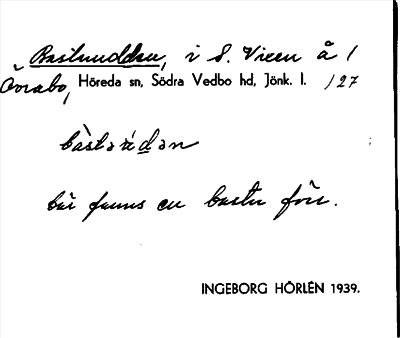 Bastuudden, i S. Vixen å 1
Övrabo, Höreda sn, Södra Vedbo hd, Jönk. l. 127
här fanns en bastu förr.
INGEBORG HÖRLÉN 1939.